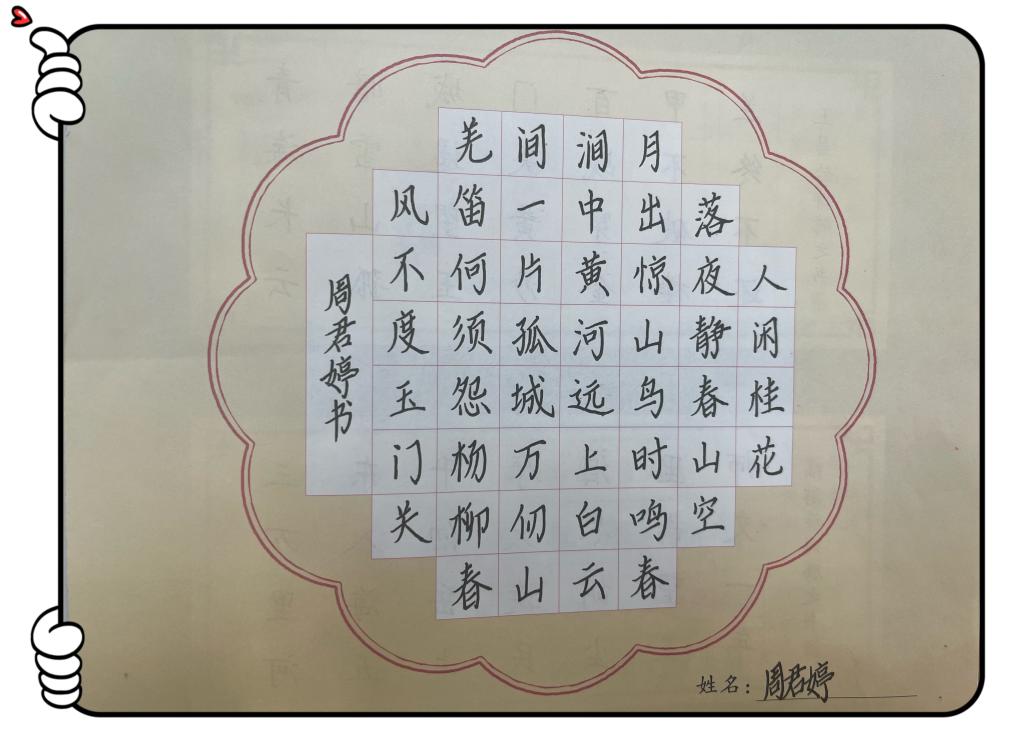 人闲桂花
落夜静春山空
月出惊山鸟时鸣春
涧中黄河远上白云
间一片孤城万仞山
羌笛何须怨杨柳春
风不度玉门关
周君婷书
姓名：周君婷